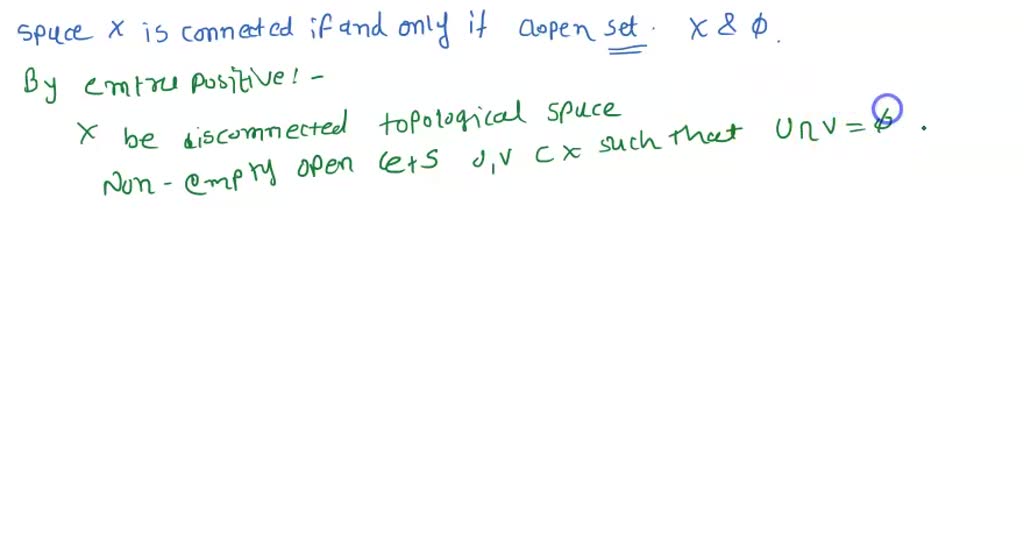 space X is connected if and only if clopen set. X & φ.
By contrapositive! -
X be disconnected topological space
Non-empty open sets U,V ⊂ X such that U∩V = φ .